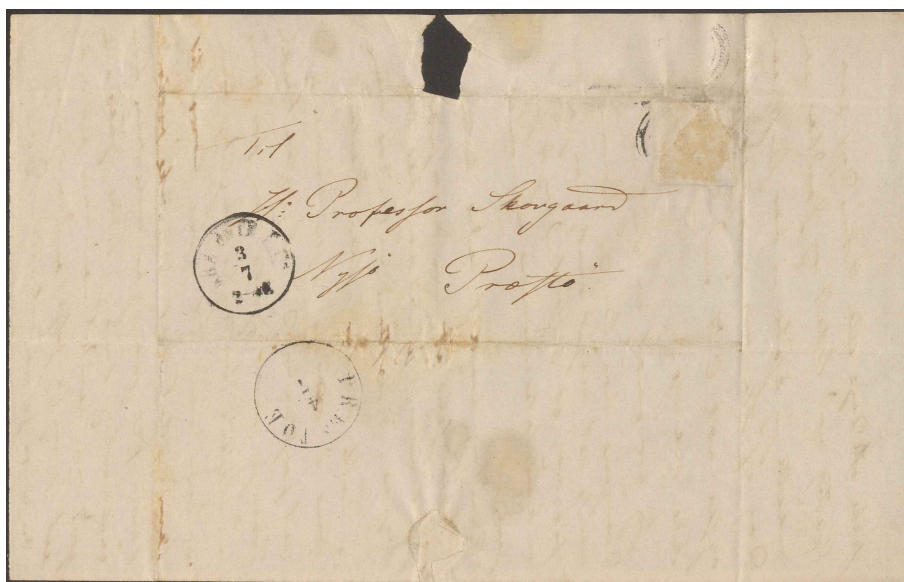 Til
Hr: Professor Skovgaard
Nysø Præstø.
3
7
PRESTOE